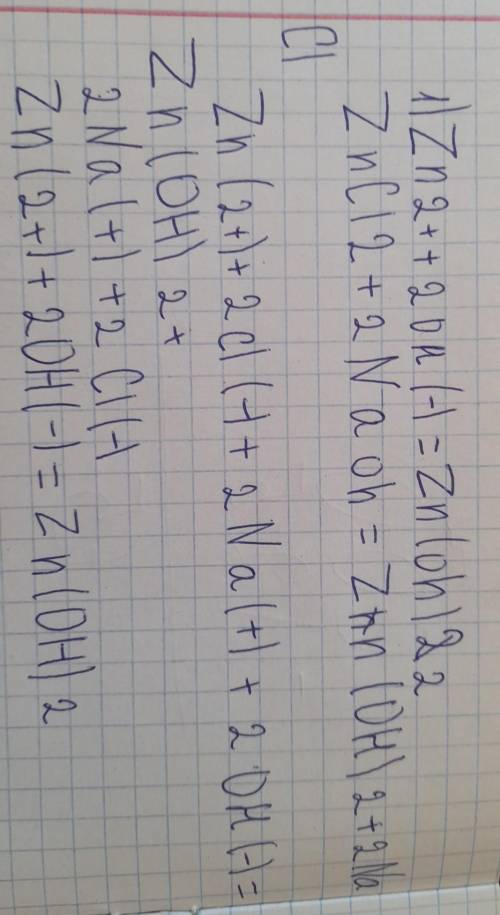 1) Zn2++2OH(-)=Zn(oh)22
ZnCl2+2Naoh=Zn(OH)2+2Na
Cl
Zn(2+)+2Cl(-)+2Na(+)+2OH(-)=
Zn(OH)2+
2Na(+)+2Cl(-)
Zn(2+)+2OH(-)=Zn(OH)2